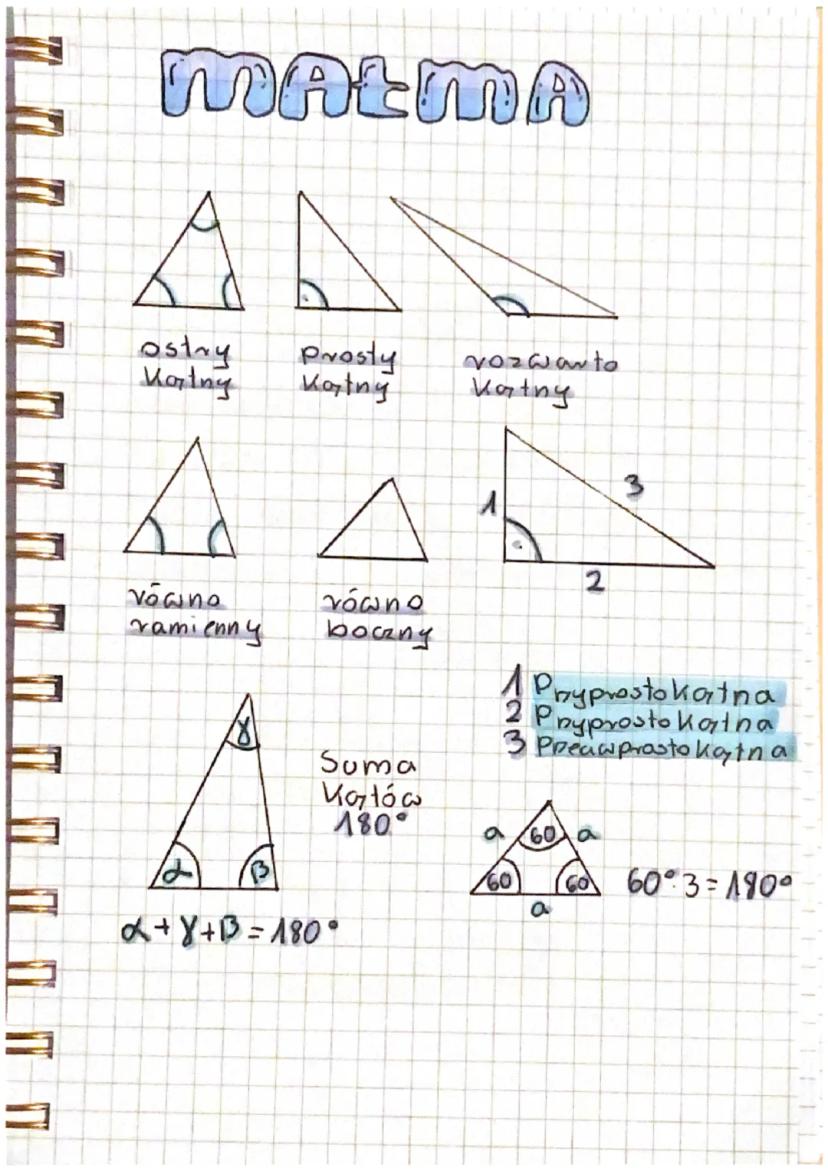 MATMA
ostry
kątny
prosty
kątny
rozwarto
kątny
1
3
2
równo
ramienny
równo
boczny
1 Przyprostokątna
2 Przyprostokątna
3 Przeciwprostokątna
γ
α
β
Suma
kątów
180°
a
60
a
60
60
a
60° · 3 = 180°
α + γ + β = 180°